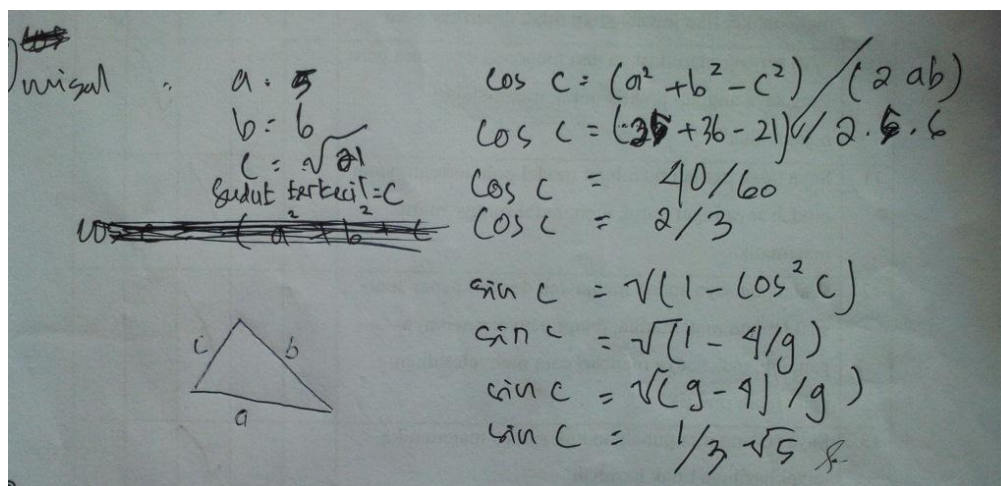 misal : a = 5
b = 6
c = √21
Sudut terkecil = C
cos c = (a² + b² - c²) / (2 ab)
cos c = (25 + 36 - 21) / 2.5.6
cos c = 40/60
cos c = 2/3
sin c = √(1 - cos² c)
sin c = √(1 - 4/9)
sin c = √(9-4)/9)
sin c = 1/3 √5
c
b
a